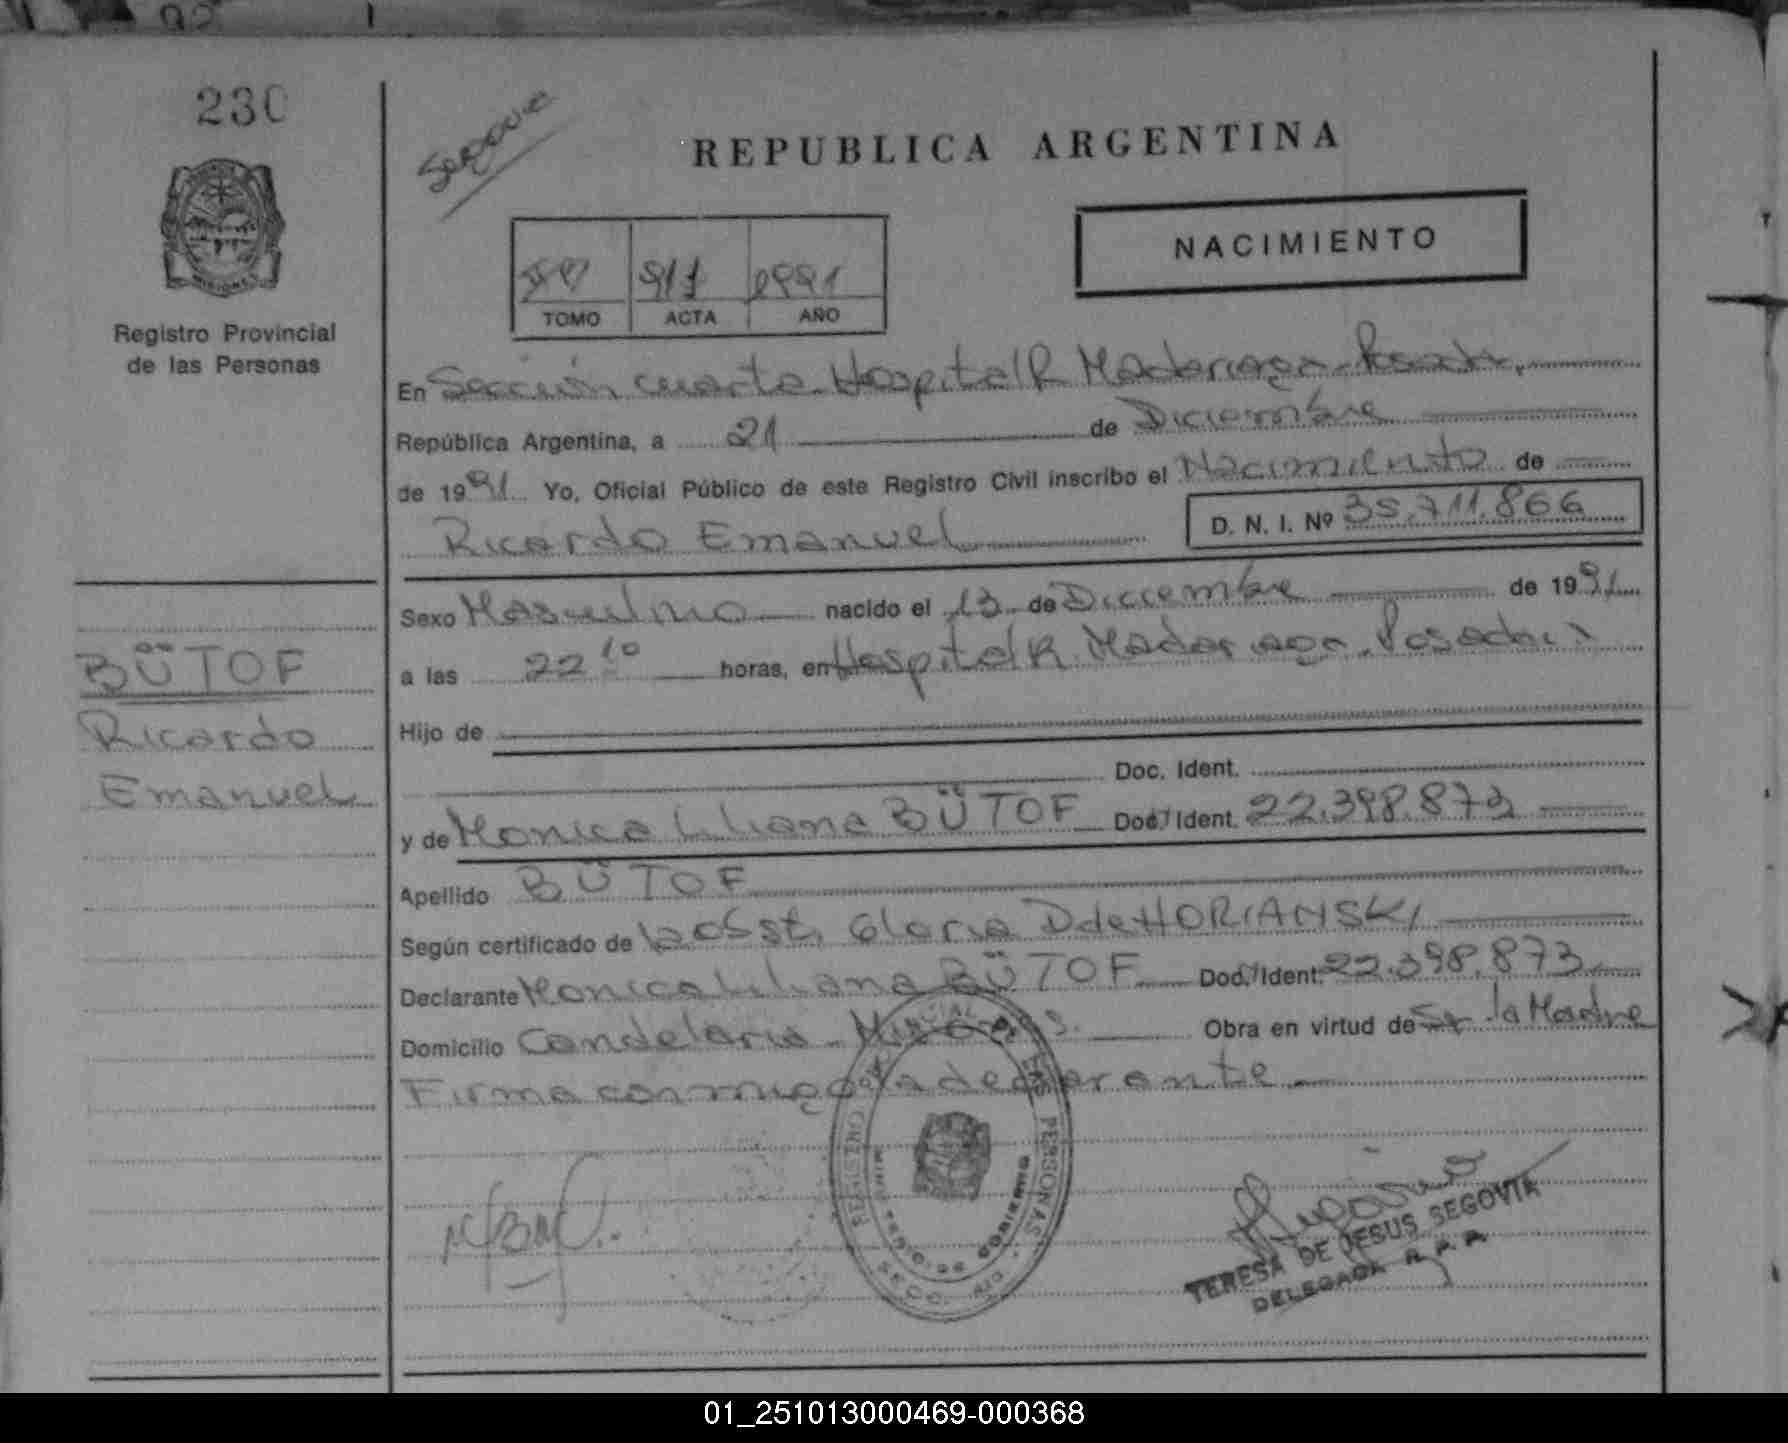 230
REPUBLICA ARGENTINA
NACIMIENTO
911 1991
TOMO ACTA AÑO
Registro Provincial
de las Personas
En Sección cuarta Hospital R Madariaga - Posadas,
República Argentina, a 21 de Diciembre
de 1991 Yo, Oficial Público de este Registro Civil inscribo el Nacimiento de
Ricardo Emanuel D. N. I. Nº 35.711.866
Sexo Masculino nacido el 13 de Diciembre de 1991
a las 22 10 horas, en Hospital R. Madariaga. Posadas
Hijo de
Doc. Ident.
y de Monica Liliana BÜTOF Doc. Ident. 22.398.873
Apellido BÜTOF
Según certificado de la Obst. Gloria D de HORIANSKI
Declarante Monica Liliana BÜTOF Doc. Ident. 22.398.873
Domicilio Candelaria - Misiones. Obra en virtud de Ser la Madre
Firma conmigo la declarante
BÜTOF
Ricardo
Emanuel
REGISTRO PROVINCIAL DE LAS PERSONAS
MINISTERIO DE GOBIERNO
SECC. 4TA
TERESA DE JESUS SEGOVIA
DELEGADA R. P. P.
01_251013000469-000368